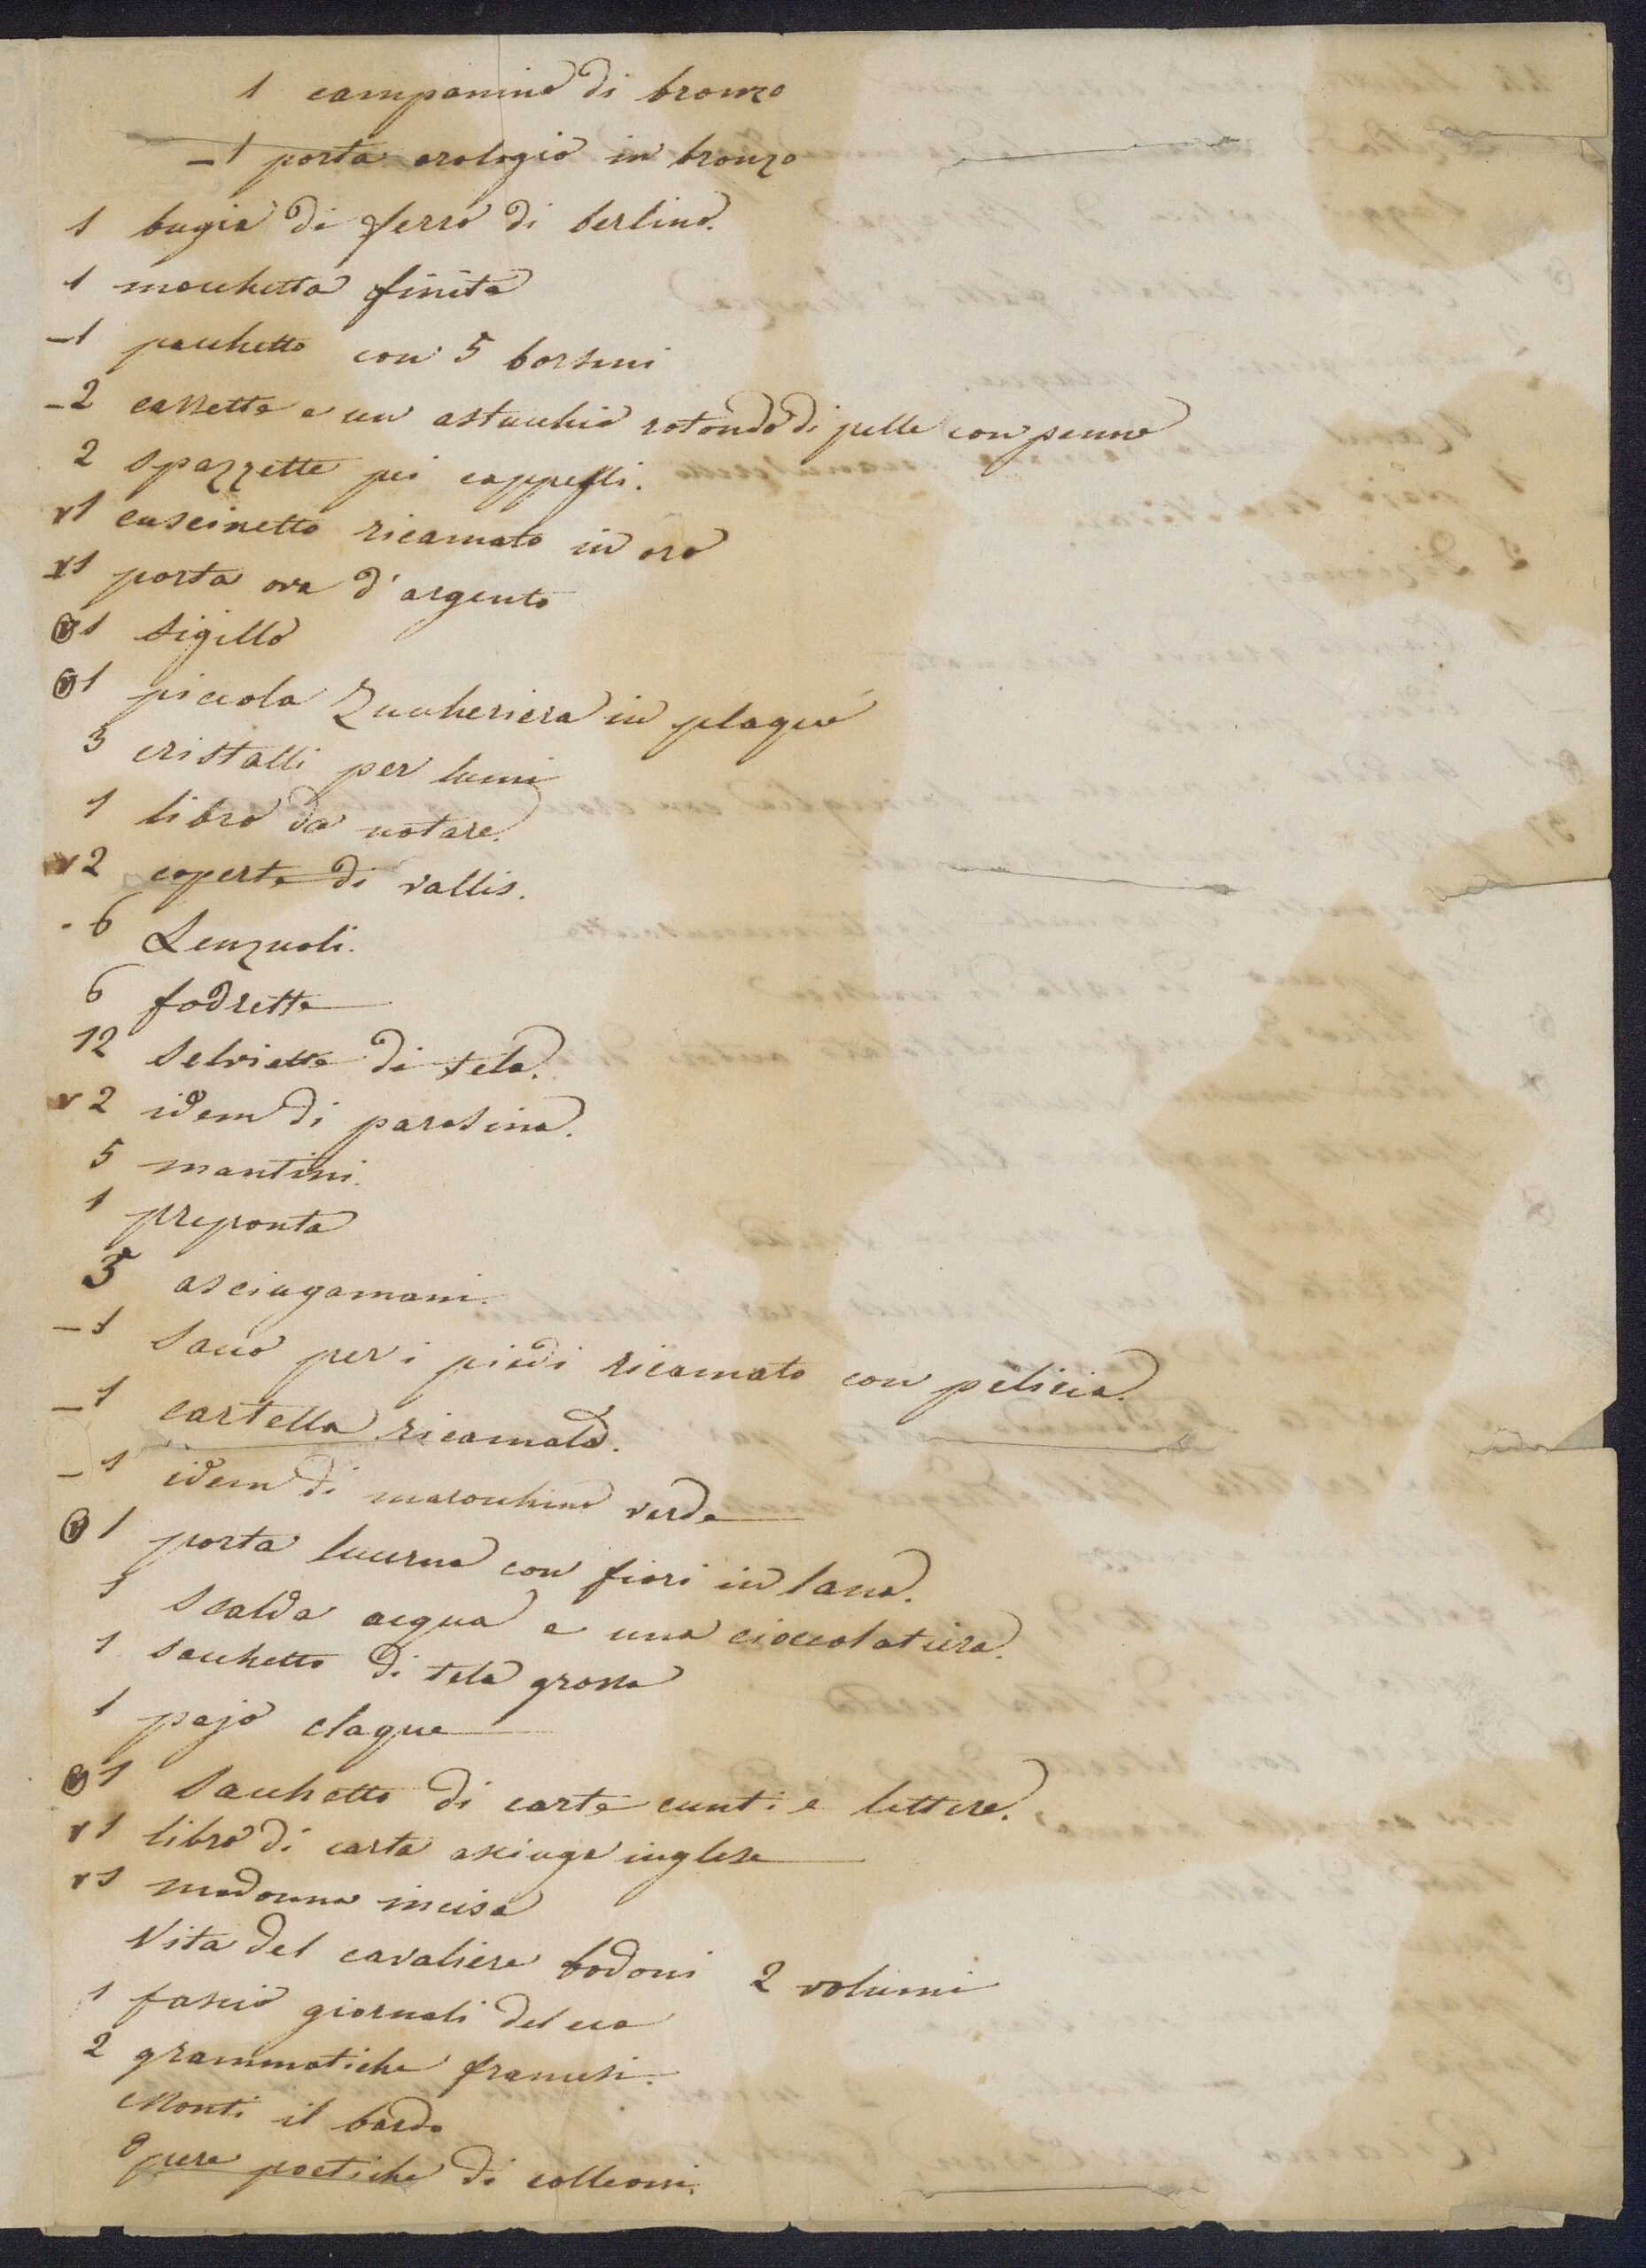 1 campanino di bronzo
– 1 porta orologio in bronzo
1 bugia di ferro di berlino.
1 mouchetta finita
– 1 pacchetto con 5 borsini
– 2 cassette e un astucchio rotondo di pelle con penne
2 spazzette pei cappelli.
v 1 cuscinetto ricamato in oro
v 1 porta ova d'argento
v 1 sigillo
v 1 piccola Zuccheriera in plaqué
3 cristalli per lumi
1 libro da notare.
v 2 coperte di vallis.
- 6 Lenzuoli.
6 fodrette
12 selviette di tela.
v 2 idem di parosina.
5 mantini.
1 preponta
3 asciugamani.
– 1 sacco per i piedi ricamato con pelicia.
– 1 cartella ricamata.
– 1 idem di marocchino verde
v 1 porta lucerna con fiori in lana.
1 scalda acqua e una cioccolatiera.
1 sacchetto di tela grossa
1 pajo claque
v 1 sacchetto di carte cunti e lettere.
v 1 libro di carta asciuga inglese
v 1 madonna incisa
Vita del cavaliere bodoni 2 volumi
1 fascio giornali del eco
2 grammatiche francesi.
Monti il bardo
Opere poetiche di colleoni.